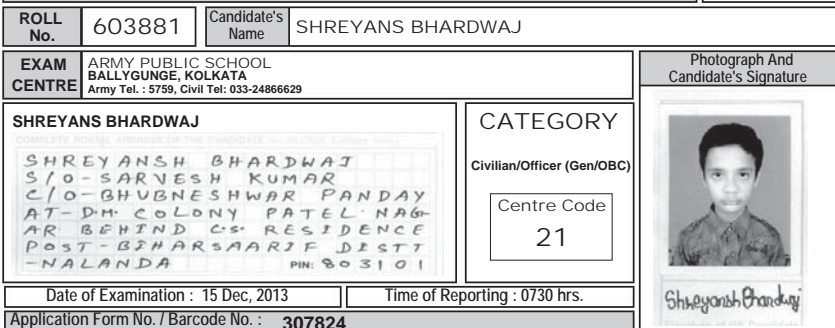 ROLL No. 603881 Candidate's Name SHREYANS BHARDWAJ
EXAM CENTRE
ARMY PUBLIC SCHOOL
BALLYGUNGE, KOLKATA
Army Tel. : 5759, Civil Tel: 033-24866629
Photograph And
Candidate's Signature
SHREYANS BHARDWAJ
SHREYANSH BHARDWAJ
S/O-SARVESH KUMAR
C/O-BHUBNESHWAR PANDAY
AT-D.M. COLONY PATEL NAG-
AR BEHIND C.S. RESIDENCE
POST-BIHARSAARIF DISTT
-NALANDA PIN: 803101
CATEGORY
Civilian/Officer (Gen/OBC)
Centre Code
21
Shreyansh Bhardwaj
Date of Examination : 15 Dec, 2013 Time of Reporting : 0730 hrs.
Application Form No. / Barcode No. : 307824